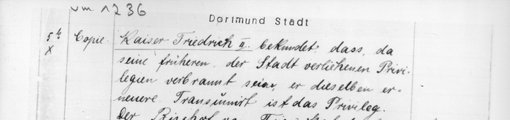 um 1236
Dortmund Stadt
5 b Copie. Kaiser Friedrich II. bekundet, dass, da
x seine früheren, der Stadt verliehenen Privi-
legien verbrannt seien, er dieselben er-
neuere. Transsumirt ist das Privileg.
Der Bischof